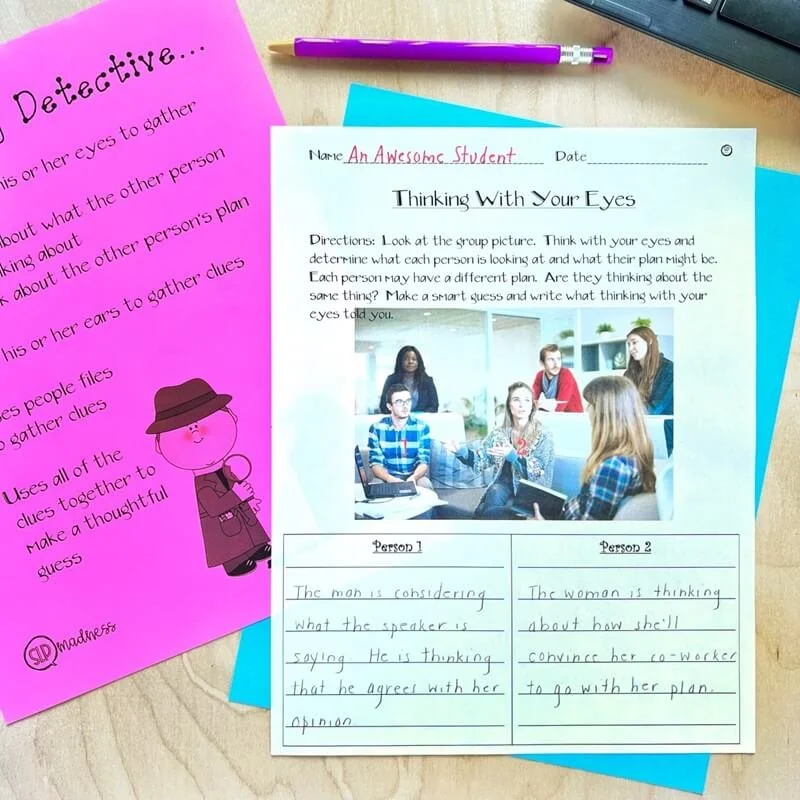 Detective...
his or her eyes to gather
about what the other person
king about
k about the other person's plan
his or her ears to gather clues
es people files
o gather clues
Uses all of the
clues together to
make a thoughtful
guess
SLP madness
Name An Awesome Student Date
Thinking With Your Eyes
Directions: Look at the group picture. Think with your eyes and
determine what each person is looking at and what their plan might be.
Each person may have a different plan. Are they thinking about the
same thing? Make a smart guess and write what thinking with your
eyes told you.
1
2
Person 1
The man is considering
what the speaker is
saying. He is thinking
that he agrees with her
opinion.
Person 2
The woman is thinking
about how she'll
convince her co-worker
to go with her plan.